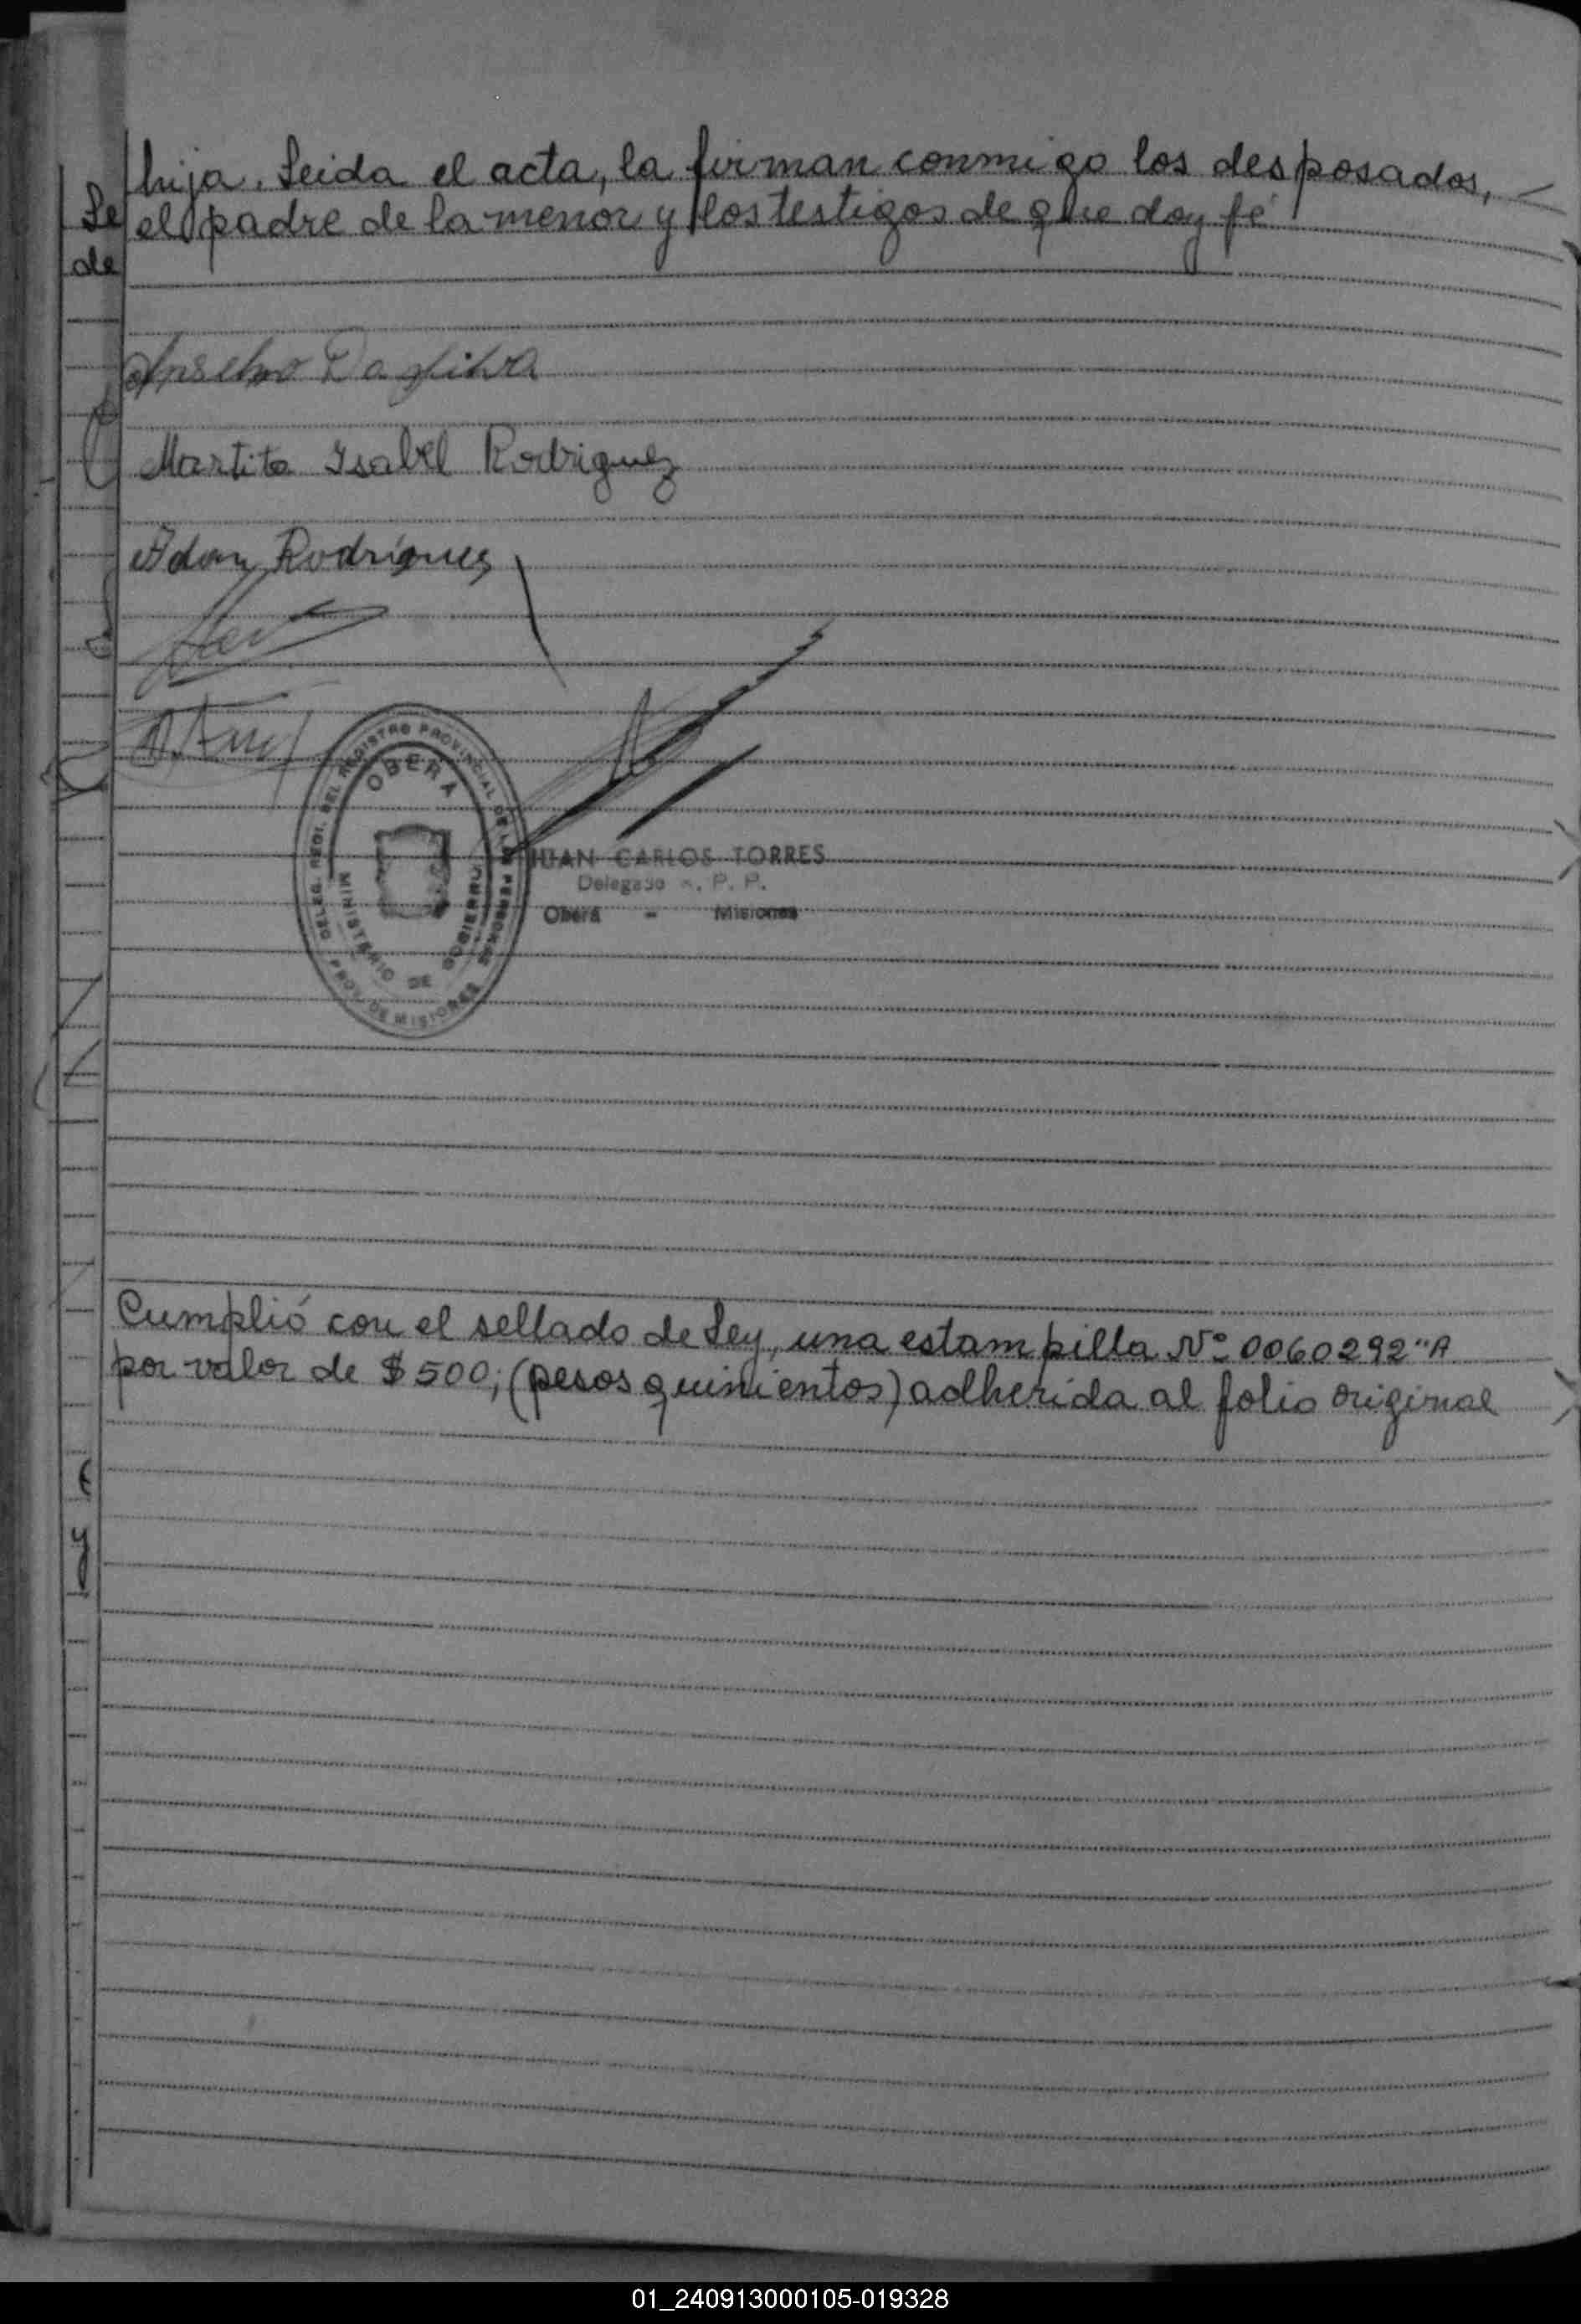 hija. Leida el acta, la firman conmigo los desposados,
el padre de la menor y los testigos de que doy fé
Se
de
Anselmo Da Silva
Martita Isabel Rodriguez
Adan Rodrigues
DELEG. REGI. DEL REGISTRO PROVINCIAL DE LAS PERSONAS
OBERA
MINISTERIO DE GOBIERNO
PROV. DE MISIONES
JUAN CARLOS TORRES
Delegado R. P. P.
Oberá - Misiones
Cumplió con el sellado de Ley, una estampilla Nº 0060292"A
por valor de $500; (pesos quinientos) adherida al folio original
y
01_240913000105-019328